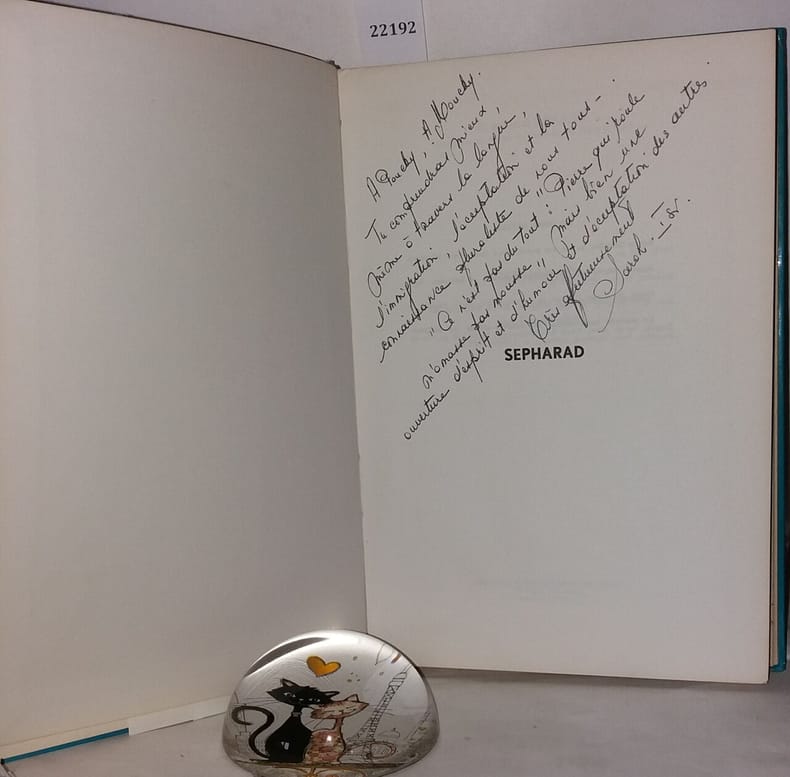 22192
A Pouchy, A Mouchy.
Tu comprendras mieux,
même à travers la langue,
l'immigration, l'acceptation et la
connaissance pluraliste de nous tous -
"Ce n'est pas du tout : "Pierre qui roule
n'amasse pas mousse" mais bien une
ouverture d'esprit et d'humour et d'acceptation des autres.
Très affectueusement
Sarah.
SEPHARAD